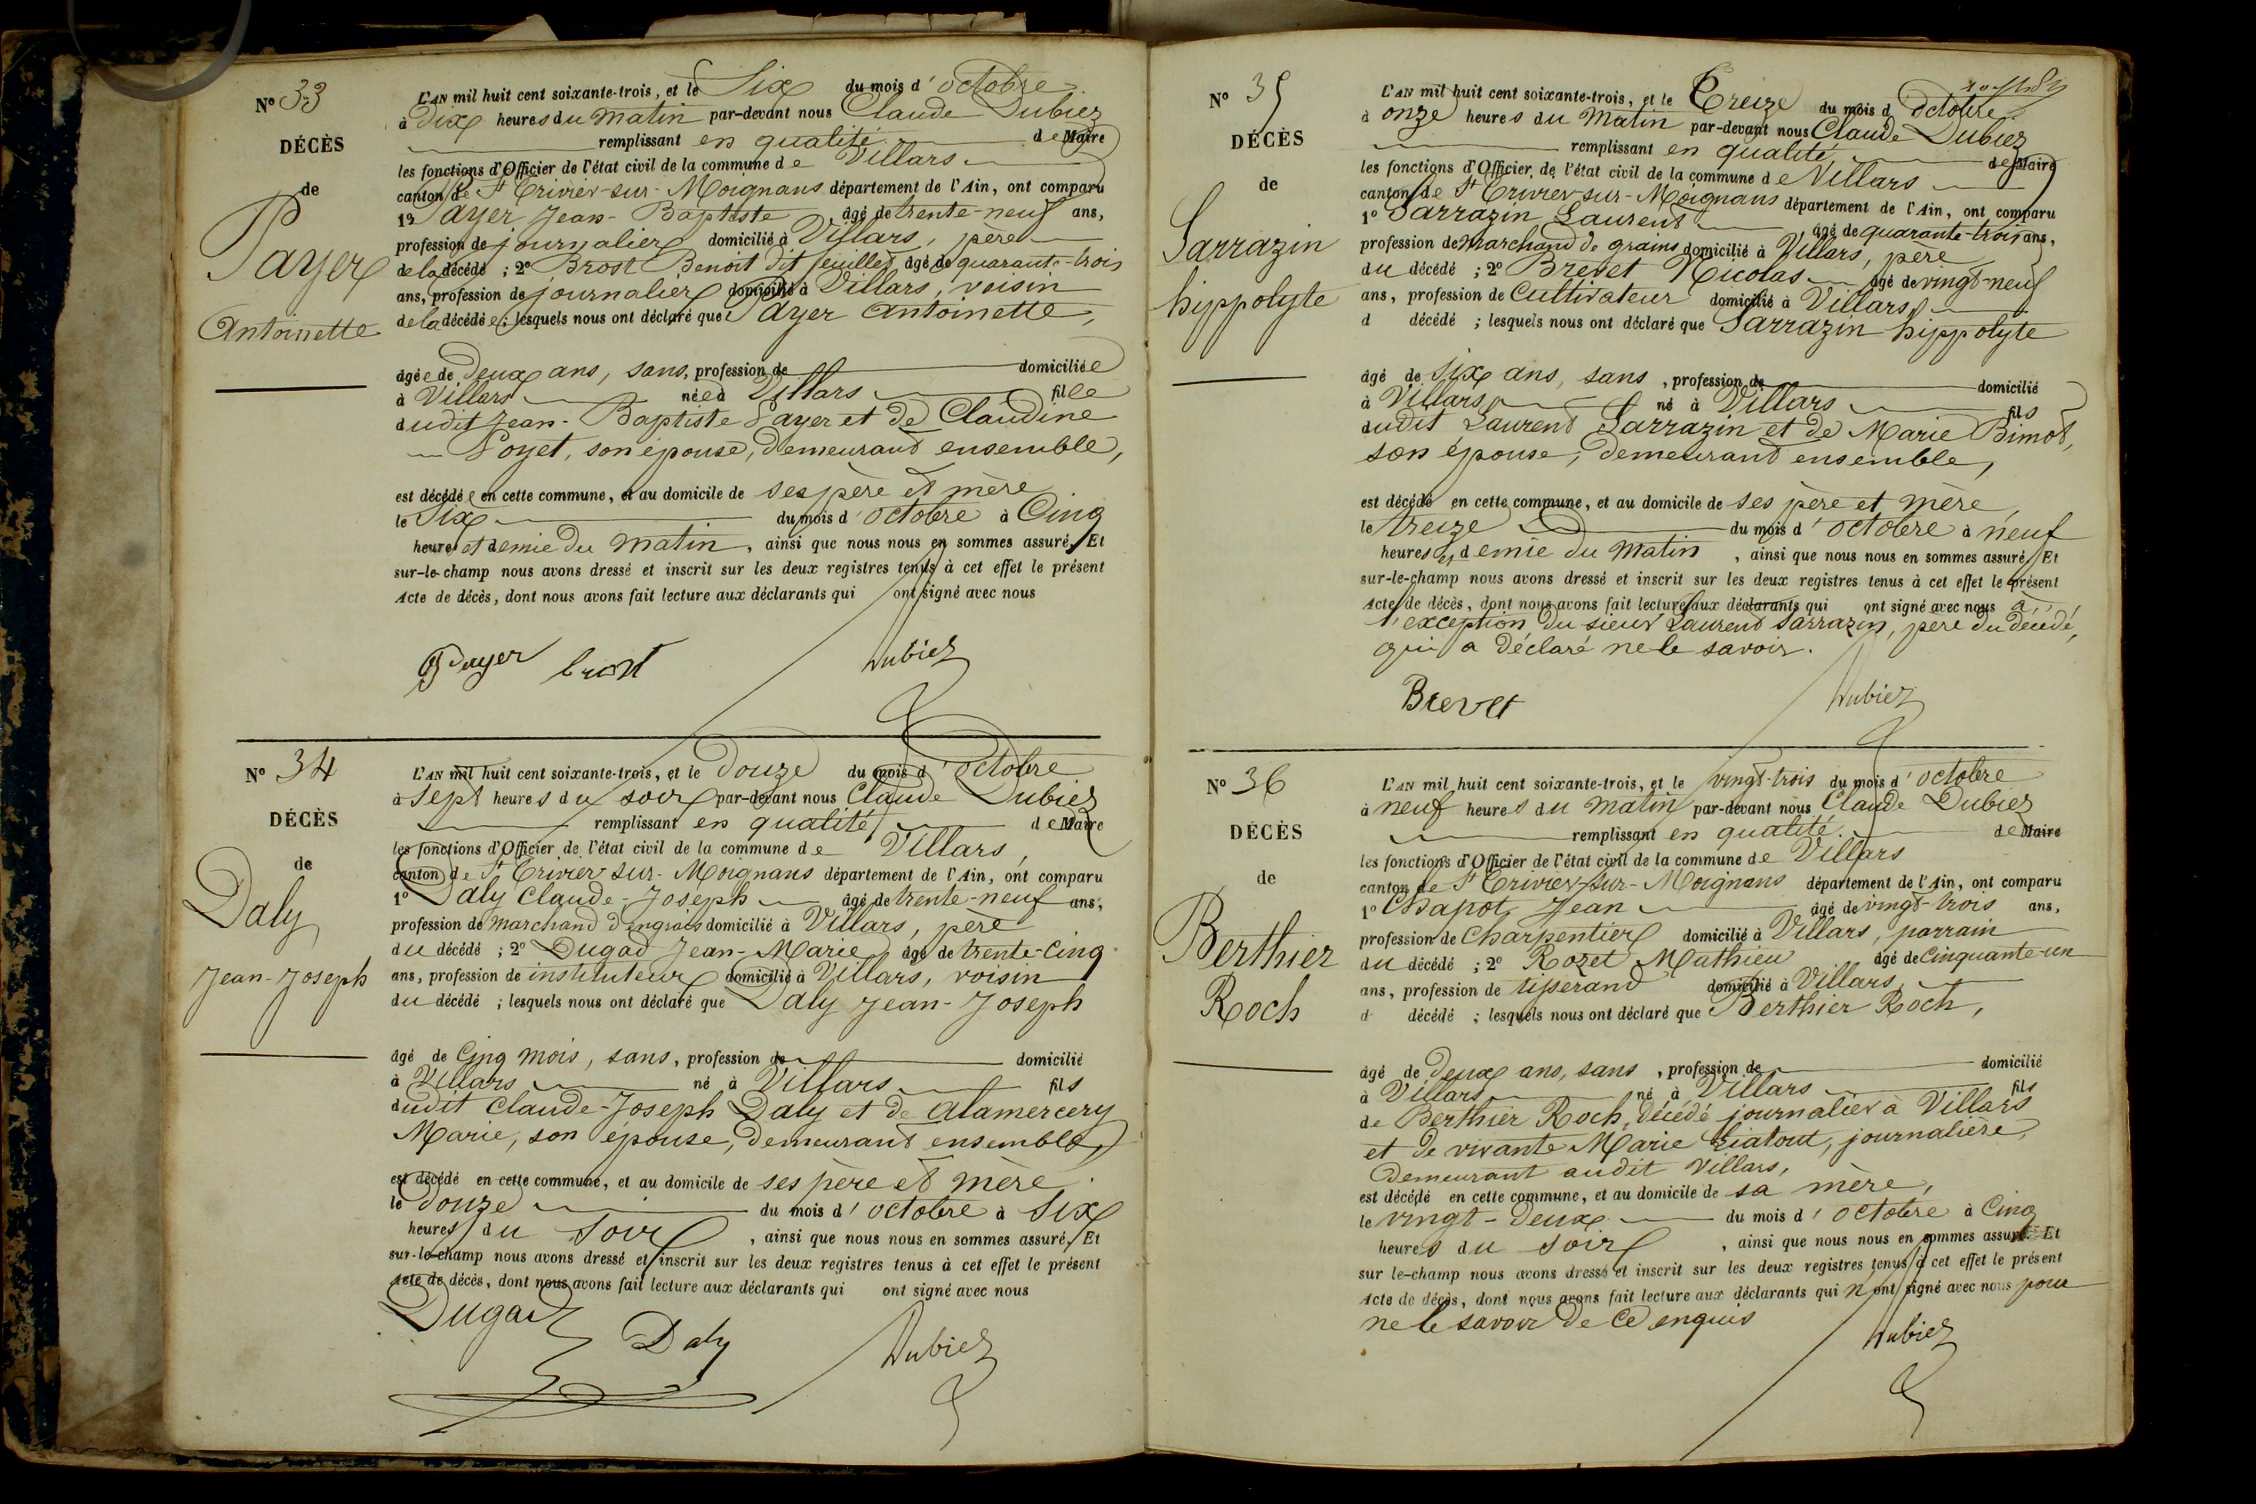 N° 33
DÉCÈS
de
Payer
Antoinette
L'AN mil huit cent soixante-trois, et le Six du mois d'octobre
à Dix heures du matin par-devant nous Claude Dubiez
remplissant en qualité de Maire
les fonctions d'Officier de l'état civil de la commune de Villars
canton de St Trivier-sur-Moignans département de l'Ain, ont comparu
1° Payer Jean-Baptiste âgé de trente-neuf ans,
profession de journalier domicilié à Villars, père
de la décédé ; 2° Brost Benoit dit feuillet âgé de quarante-trois
ans, profession de journalier domicilié à Villars, voisin
de la décédée ; lesquels nous ont déclaré que Payer Antoinette,
âgée de Deux ans, sans, profession de domiciliée
à Villars née à Villars fille
dudit Jean-Baptiste Payer et de Claudine
Poyet, son épouse, demeurant ensemble,
est décédée en cette commune, et au domicile de ses père et mère
le Six du mois d'octobre à Cinq
heures et demie du matin, ainsi que nous nous en sommes assuré. Et
sur-le-champ nous avons dressé et inscrit sur les deux registres tenus à cet effet le présent
Acte de décès, dont nous avons fait lecture aux déclarants qui ont signé avec nous
Payer brost Dubiez
N° 34
DÉCÈS
de
Daly
Jean-Joseph
L'AN mil huit cent soixante-trois, et le Douze du mois d'octobre
à sept heures du soir par-devant nous Claude Dubiez
remplissant en qualité de Maire
les fonctions d'Officier de l'état civil de la commune de Villars,
canton de St Trivier sur-Moignans département de l'Ain, ont comparu
1° Daly Claude-Joseph âgé de trente-neuf ans,
profession de marchand d'engrais domicilié à Villars, père
du décédé ; 2° Dugad Jean-Marie âgé de trente-cinq
ans, profession de instituteur domicilié à Villars, voisin
du décédé ; lesquels nous ont déclaré que Daly Jean-Joseph
âgé de Cinq mois, sans, profession de domicilié
à Villars né à Villars fils
dudit Claude-Joseph Daly et de Alamercery
Marie, son épouse, demeurant ensemble,
est décédé en cette commune, et au domicile de ses père et mère
le douze du mois d'octobre à Six
heures du Soir, ainsi que nous nous en sommes assuré. Et
sur-le-champ nous avons dressé et inscrit sur les deux registres tenus à cet effet le présent
Acte de décès, dont nous avons fait lecture aux déclarants qui ont signé avec nous
Dugad Daly Dubiez
N° 35
DÉCÈS
de
Sarrazin
hippolyte
L'AN mil huit cent soixante-trois, et le Treize du mois d octobre
à onze heures du Matin par-devant nous Claude Dubiez
remplissant en qualité de Maire
les fonctions d'Officier de l'état civil de la commune de Villars
canton de St Trivier-sur-Moignans département de l'Ain, ont comparu
1° Sarrazin Laurent âgé de quarante-trois ans,
profession de marchand de grains domicilié à Villars, père
du décédé ; 2° Brevet Nicolas âgé de vingt-neuf
ans, profession de Cultivateur domicilié à Villars
d décédé ; lesquels nous ont déclaré que Sarrazin hippolyte
âgé de Six ans, sans, profession de domicilié
à Villars né à Villars fils
dudit Laurent Sarrazin et de Marie Bimot,
son épouse, demeurant ensemble,
est décédé en cette commune, et au domicile de ses père et mère,
le treize du mois d'octobre à neuf
heures & demie du matin, ainsi que nous nous en sommes assuré. Et
sur-le-champ nous avons dressé et inscrit sur les deux registres tenus à cet effet le présent
Acte de décès, dont nous avons fait lecture aux déclarants qui ont signé avec nous à
l'exception du sieur Laurent Sarrazin, père du décédé,
qui a déclaré ne le savoir.
Brevet Dubiez
N° 36
DÉCÈS
de
Berthier
Roch
L'AN mil huit cent soixante-trois, et le vingt-trois du mois d'octobre
à neuf heures du matin par-devant nous Claude Dubiez
remplissant en qualité de Maire
les fonctions d'Officier de l'état civil de la commune de Villars
canton de St Trivier-sur-Moignans département de l'Ain, ont comparu
1° Chapot Jean âgé de vingt-trois ans,
profession de Charpentier domicilié à Villars, parrain
du décédé ; 2° Rozet Mathieu âgé de Cinquante-un
ans, profession de tisserand domicilié à Villars,
d décédé ; lesquels nous ont déclaré que Berthier Roch,
âgé de deux ans, sans, profession de domicilié
à Villars né à Villars fils
de Berthier Roch, décédé journalier à Villars
et de vivante Marie Liatout, journalière,
demeurant audit Villars,
est décédé en cette commune, et au domicile de sa mère,
le vingt-deux du mois d'octobre à Cinq
heures du soir, ainsi que nous nous en sommes assuré. Et
sur le-champ nous avons dressé et inscrit sur les deux registres tenus à cet effet le présent
Acte de décès, dont nous avons fait lecture aux déclarants qui n'ont signé avec nous pour
ne le savoir de ce enquis
Dubiez